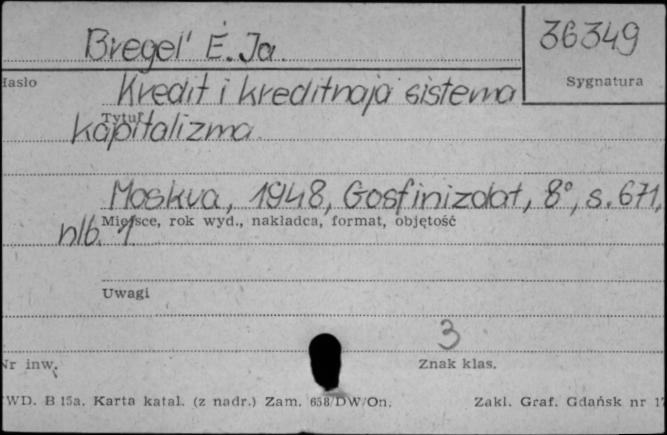 Bregel' É. Ja. 36349
Hasło Sygnatura
Kredit i kreditnaja sistema
Tytuł
kapitalizma
Moskva, 1948, Gosfinizdat, 8°, s. 671,
Miejsce, rok wyd., nakładca, format, objętość
nlb. 1
Uwagi
3
Nr inw. Znak klas.
WD. B 15a. Karta katal. (z nadr.) Zam. 658/DW/On. Zakl. Graf. Gdańsk nr 17